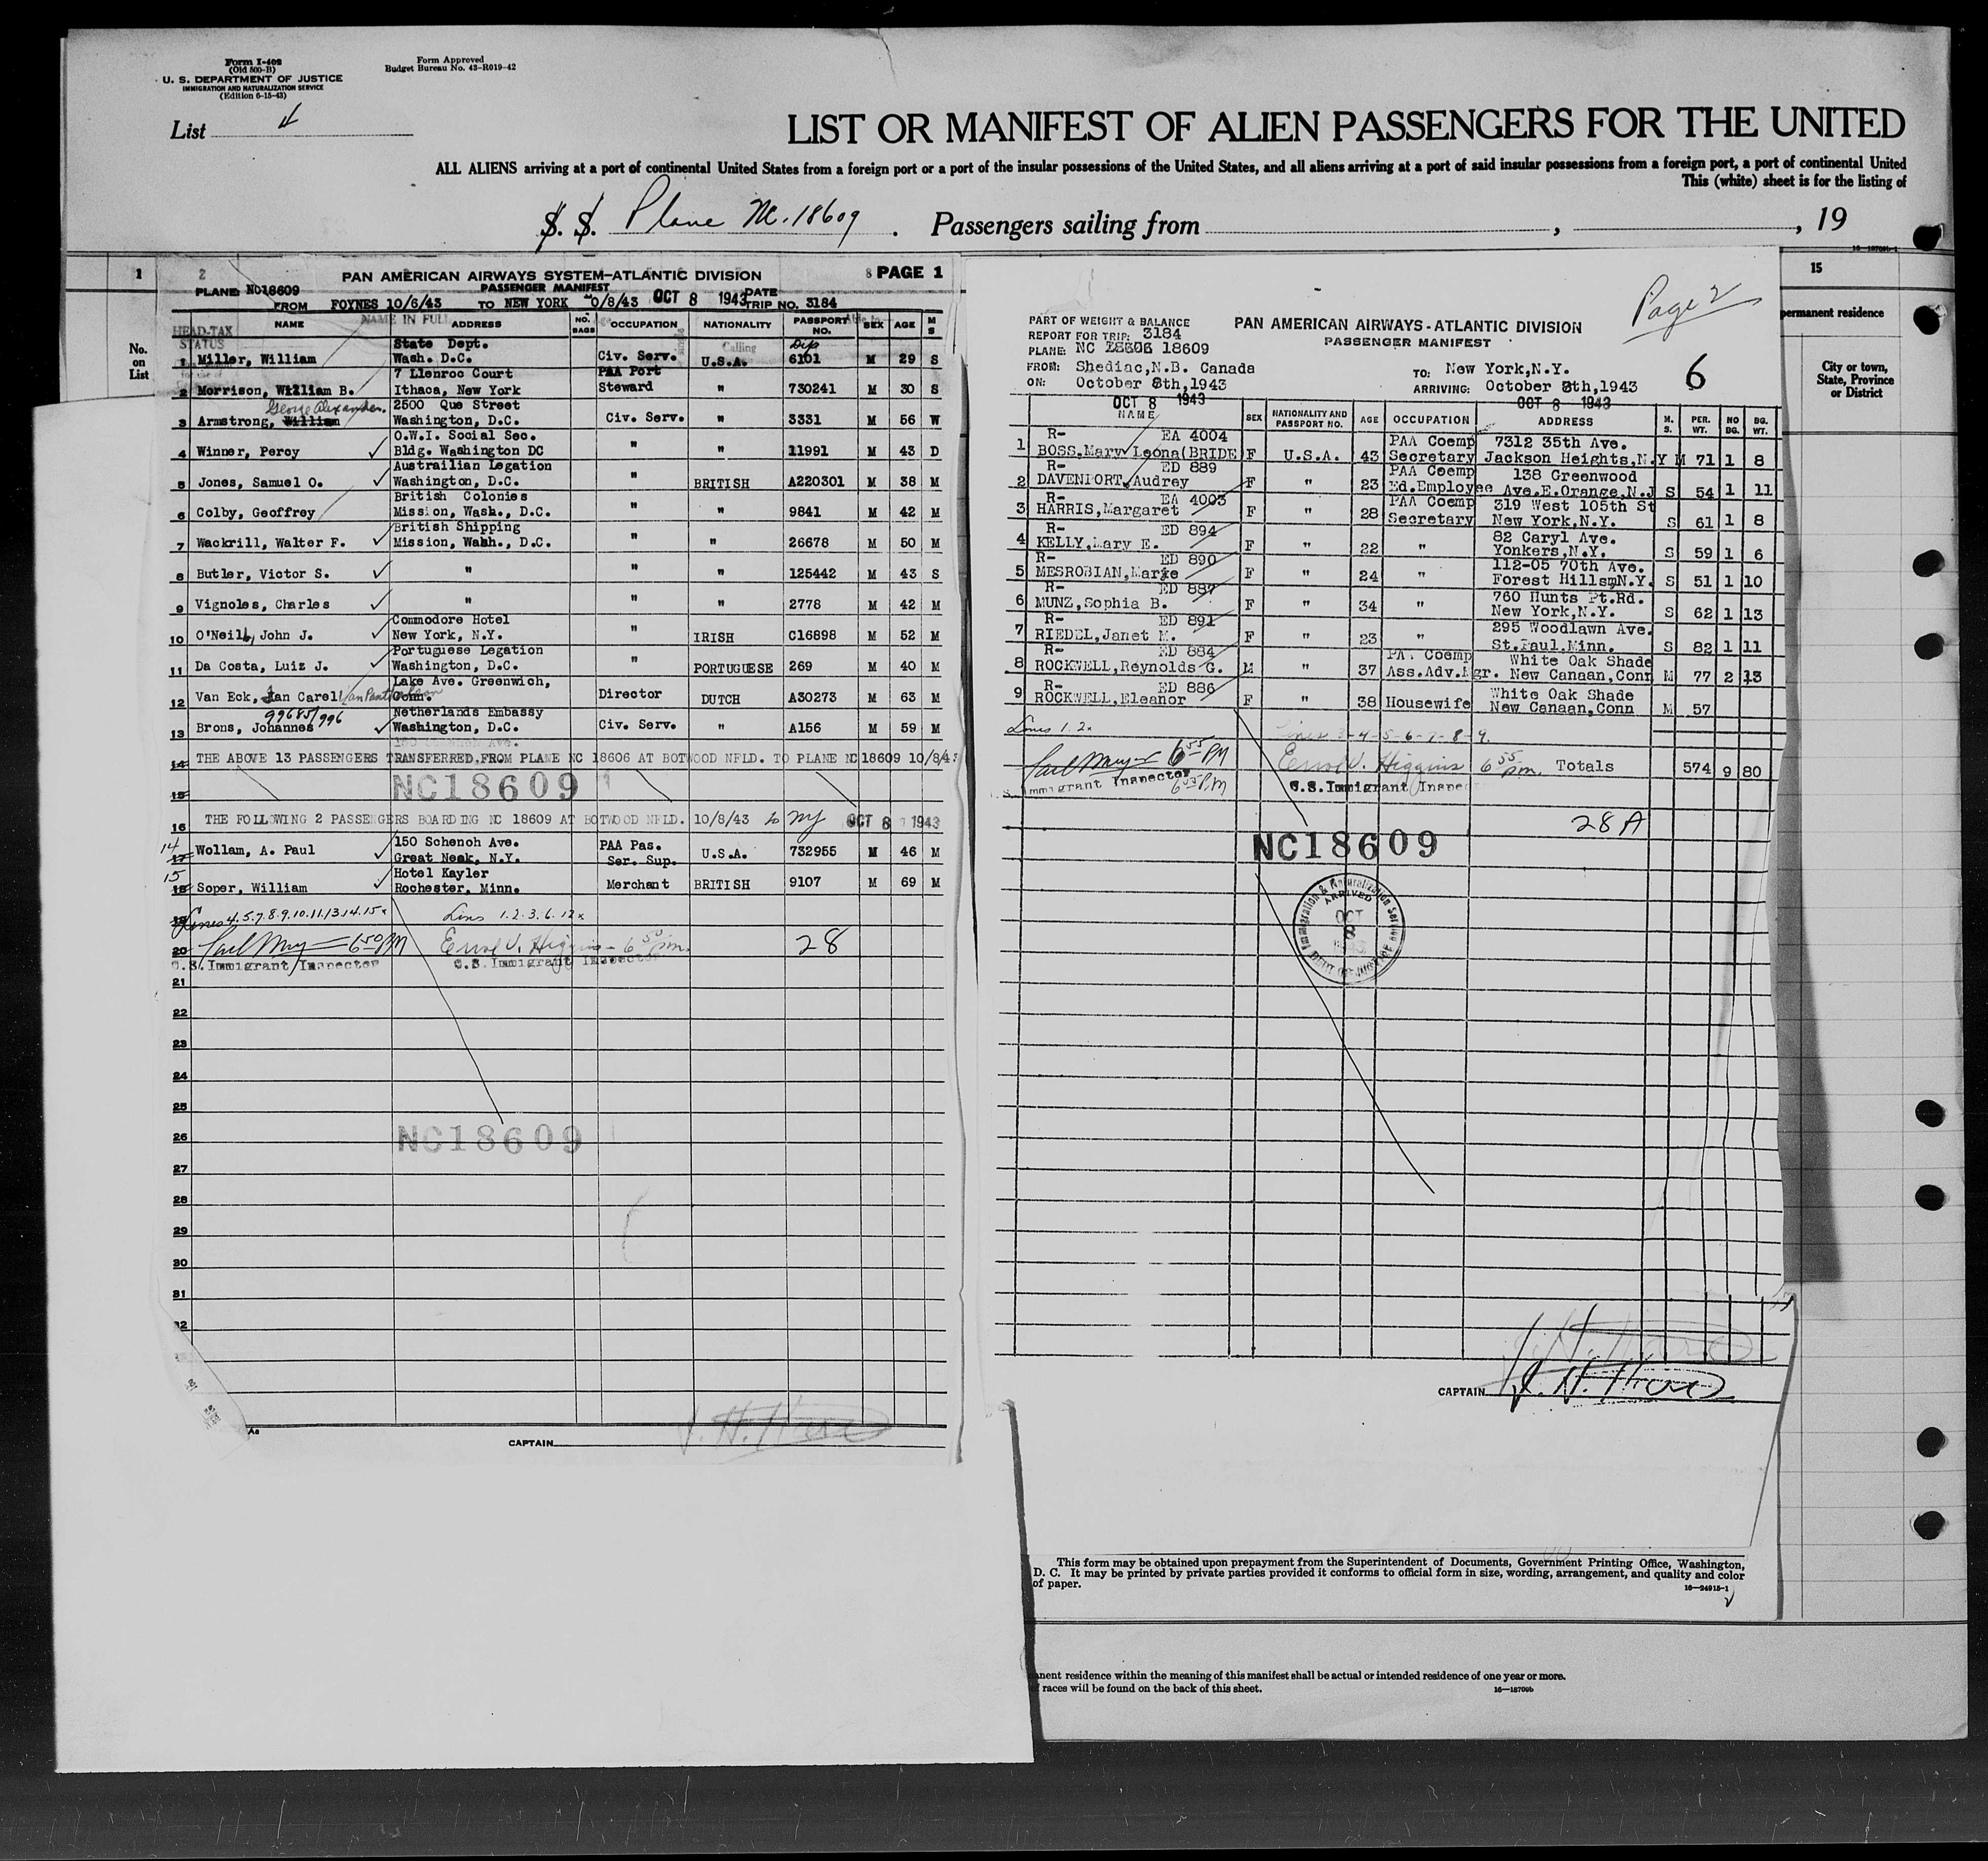 Form I-402
(Old 500-B)
U. S. DEPARTMENT OF JUSTICE
IMMIGRATION AND NATURALIZATION SERVICE
(Edition 6-15-43)
Form Approved
Budget Bureau No. 43-R019-42
List 4
LIST OR MANIFEST OF ALIEN PASSENGERS FOR THE UNITED
ALL ALIENS arriving at a port of continental United States from a foreign port or a port of the insular possessions of the United States, and all aliens arriving at a port of said insular possessions from a foreign port, a port of continental United
This (white) sheet is for the listing of
S. S. Plane NC. 18609. Passengers sailing from , , 19
16—18709b-1
1
No. on List
2 PAN AMERICAN AIRWAYS SYSTEM—ATLANTIC DIVISION 8 PAGE 1
PLANE: NC18609 PASSENGER MANIFEST
FROM FOYNES 10/6/43 TO NEW YORK 10/8/43 OCT 8 1943 DATE TRIP NO. 3184
HEAD-TAX STATUS NAME IN FULL
NAME ADDRESS NO. BAGS OCCUPATION NATIONALITY PASSPORT NO. SEX AGE M S
Calling
State Dept. Dip
1 Miller, William Wash. D.C. Civ. Serv. U.S.A. 6101 M 29 S
7 Llenroc Court PAA Port
2 Morrison, William B. Ithaca, New York Steward " 730241 M 30 S
George Alexander. 2500 Que Street
3 Armstrong, William Washington, D.C. Civ. Serv. " 3331 M 56 W
O.W.I. Social Sec.
4 Winner, Percy Bldg. Washington DC " " 11991 M 43 D
Austrailian Legation
5 Jones, Samuel O. Washington, D.C. " BRITISH A220301 M 38 M
British Colonies
6 Colby, Geoffrey Mission, Wash., D.C. " " 9841 M 42 M
British Shipping
7 Wackrill, Walter F. Mission, Wash., D.C. " " 26678 M 50 M
8 Butler, Victor S. " " " 125442 M 43 S
9 Vignoles, Charles " " " 2778 M 42 M
Commodore Hotel
10 O'Neill, John J. New York, N.Y. " IRISH C16898 M 52 M
Portuguese Legation
11 Da Costa, Luiz J. Washington, D.C. " PORTUGUESE 269 M 40 M
Lake Ave. Greenwich,
12 Van Eck, Jan Carel Conn. Director DUTCH A30273 M 63 M
99685/996 Netherlands Embassy
13 Brons, Johannes Washington, D.C. Civ. Serv. " A156 M 59 M
14 THE ABOVE 13 PASSENGERS TRANSFERRED FROM PLANE NC 18606 AT BOTWOOD NFLD. TO PLANE NC 18609 10/8/43
15 NC18609
16 THE FOLLOWING 2 PASSENGERS BOARDING NC 18609 AT BOTWOOD NFLD. 10/8/43 to NY OCT 8 1943
14 150 Schenoh Ave. PAA Pas.
17 Wollam, A. Paul Great Neak, N.Y. Ser. Sup. U.S.A. 732955 M 46 M
15 Hotel Kayler
18 Soper, William Rochester, Minn. Merchant BRITISH 9107 M 69 M
19 Lines 4.5.7.8.9.10.11.13.14.15x Lines 1.2.3.6.12x
20 6 50 PM Errol V. Higgins - 6 50 pm. 28
U.S. Immigrant Inspector U.S. Immigrant Inspector
21
22
23
24
25
26 NC18609
27
28
29
30
31
32
CAPTAIN
Page 2
PART OF WEIGHT & BALANCE
REPORT FOR TRIP: 3184
PLANE: NC 18606 18609
FROM: Shediac,N.B. Canada
ON: October 8th,1943
PAN AMERICAN AIRWAYS - ATLANTIC DIVISION
PASSENGER MANIFEST
TO: New York,N.Y.
ARRIVING: October 8th,1943
6
OCT 8 1943 OCT 8 1943
NAME SEX NATIONALITY AND PASSPORT NO. AGE OCCUPATION ADDRESS M. S. PER. WT. NO BG. BG. WT.
R- EA 4004 PAA Coemp 7312 35th Ave.
1 BOSS,Mary Leona(BRIDE F U.S.A. 43 Secretary Jackson Heights,N.Y M 71 1 8
R- ED 889 PAA Coemp 138 Greenwood
2 DAVENPORT,Audrey F " 23 Ed.Employee Ave.E.Orange,N.J S 54 1 11
R- EA 4003 PAA Coemp 319 West 105th St
3 HARRIS,Margaret F " 28 Secretary New York,N.Y. S 61 1 8
R- ED 894 82 Caryl Ave.
4 KELLY,Mary E. F " 22 " Yonkers,N.Y. S 59 1 6
R- ED 890 112-05 70th Ave.
5 MESROBIAN,Marie F " 24 " Forest Hills,N.Y. S 51 1 10
R- ED 887 760 Hunts Pt.Rd.
6 MUNZ,Sophia B. F " 34 " New York,N.Y. S 62 1 13
R- ED 891 295 Woodlawn Ave.
7 RIEDEL,Janet M. F " 23 " St.Paul,Minn. S 82 1 11
R- ED 884 PAA Coemp White Oak Shade
8 ROCKWELL,Reynolds G. M " 37 Ass.Adv.Mgr. New Canaan,Conn M 77 2 13
R- ED 886 White Oak Shade
9 ROCKWELL,Eleanor F " 38 Housewife New Canaan,Conn M 57
Lines 1.2x Lines 3-4-5-6-7-8-9.
6 55 PM Errol V. Higgins 6 55 pm. Totals 574 9 80
Immigrant Inspector 6 55 PM U.S. Immigrant Inspec
28 A
NC18609
Immigration & Naturalization Service
ARRIVED
OCT
8
1943
DEPT. OF JUSTICE
CAPTAIN
15
permanent residence
City or town, State, Province or District
This form may be obtained upon prepayment from the Superintendent of Documents, Government Printing Office, Washington,
D. C. It may be printed by private parties provided it conforms to official form in size, wording, arrangement, and quality and color
of paper. 16—24915-1
nent residence within the meaning of this manifest shall be actual or intended residence of one year or more.
races will be found on the back of this sheet. 16—18709b